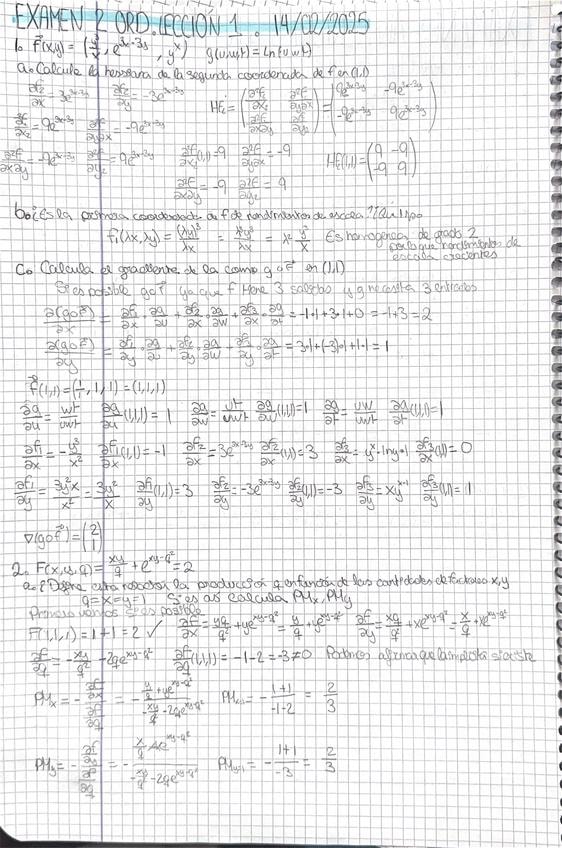 EXAMEN 2 ORD. LECCION 1. 14/02/2025
1. f⃗(x,y) = (y³/x, e^(3x-3y), y^x) g(u,w,t) = Ln(uwt)
a. Calcula la hessiana de la segunda coordenada de f en (1,1)
∂f₂/∂x = 3e^(3x-3y) ∂f₂/∂y = -3e^(3x-3y) Hf₂ = (∂²f/∂x² ∂²f/∂y∂x ; ∂²f/∂x∂y ∂²f/∂y²) = (9e^(3x-3y) -9e^(3x-3y) ; -9e^(3x-3y) 9e^(3x-3y))
∂²f/∂x² = 9e^(3x-3y) ∂²f/∂y∂x = -9e^(3x-3y)
∂²f/∂x∂y = -9e^(3x-3y) ∂²f/∂y² = 9e^(3x-3y) ∂²f/∂x²(1,1) = 9 ∂²f/∂y∂x = -9 Hf(1,1) = (9 -9 ; -9 9)
∂²f/∂x∂y = -9 ∂²f/∂y² = 9
b. ¿Es la primera coordenada de f de rendimientos de escala? ¿Qué tipo
f₁(λx,λy) = (λy)³/λx = λ³y³/λx = λ² y³/x Es homogenea de grado 2
por lo que rendimientos de
escala crecientes
c. Calcula el gradiente de la comp g o f⃗ en (1,1)
Si es posible g o f⃗ ya que f tiene 3 salidas y g necesita 3 entradas
∂(g o f⃗)/∂x = ∂f₁/∂x · ∂g/∂u + ∂f₂/∂x · ∂g/∂w + ∂f₃/∂x · ∂g/∂t = -1·1+3·1+0 = -1+3 = 2
∂(g o f⃗)/∂y = ∂f₁/∂y · ∂g/∂u + ∂f₂/∂y · ∂g/∂w + ∂f₃/∂y · ∂g/∂t = 3·1+(-3)·1+1·1 = 1
f⃗(1,1) = (1/1, 1, 1) = (1,1,1)
∂g/∂u = wt/uwt ∂g/∂u(1,1,1) = 1 ∂g/∂w = ut/uwt ∂g/∂w(1,1,1) = 1 ∂g/∂t = uw/uwt ∂g/∂t(1,1,1) = 1
∂f₁/∂x = -y³/x² ∂f₁/∂x(1,1) = -1 ∂f₂/∂x = 3e^(3x-3y) ∂f₂/∂x(1,1) = 3 ∂f₃/∂x = y^x · lny · 1 ∂f₃/∂x(1,1) = 0
∂f₁/∂y = 3y²x/x² = 3y²/x ∂f₁/∂y(1,1) = 3 ∂f₂/∂y = -3e^(3x-3y) ∂f₂/∂y(1,1) = -3 ∂f₃/∂y = xy^(x-1) ∂f₃/∂y(1,1) = 1
∇(g o f⃗) = (2 ; 1)
2. F(x,y,q) = xy/q + e^(xy-q²) = 2
a. ¿Define esta relación la producción q en función de las cantidades de factores x,y
q = x = y = 1 Si es así calcula PMx, PMy
Primero vamos si es posible
F(1,1,1) = 1+1 = 2 ✓ ∂f/∂x = yq/q² + ye^(xy-q²) = y/q + ye^(xy-q²) ∂f/∂y = xq/q² + xe^(xy-q²) = x/q + xe^(xy-q²)
∂f/∂q = -xy/q² - 2qe^(xy-q²) ∂f/∂q(1,1,1) = -1-2 = -3 ≠ 0 Podemos afirmar que la implicita si existe
PMx = - (∂f/∂x)/(∂f/∂q) = - (y/q + ye^(xy-q²))/(-xy/q² - 2qe^(xy-q²)) PMx=1 = - (1+1)/(-1-2) = 2/3
PMy = - (∂f/∂y)/(∂f/∂q) = - (x/q + xe^(xy-q²))/(-xy/q² - 2qe^(xy-q²)) PMy=1 = - (1+1)/(-3) = 2/3